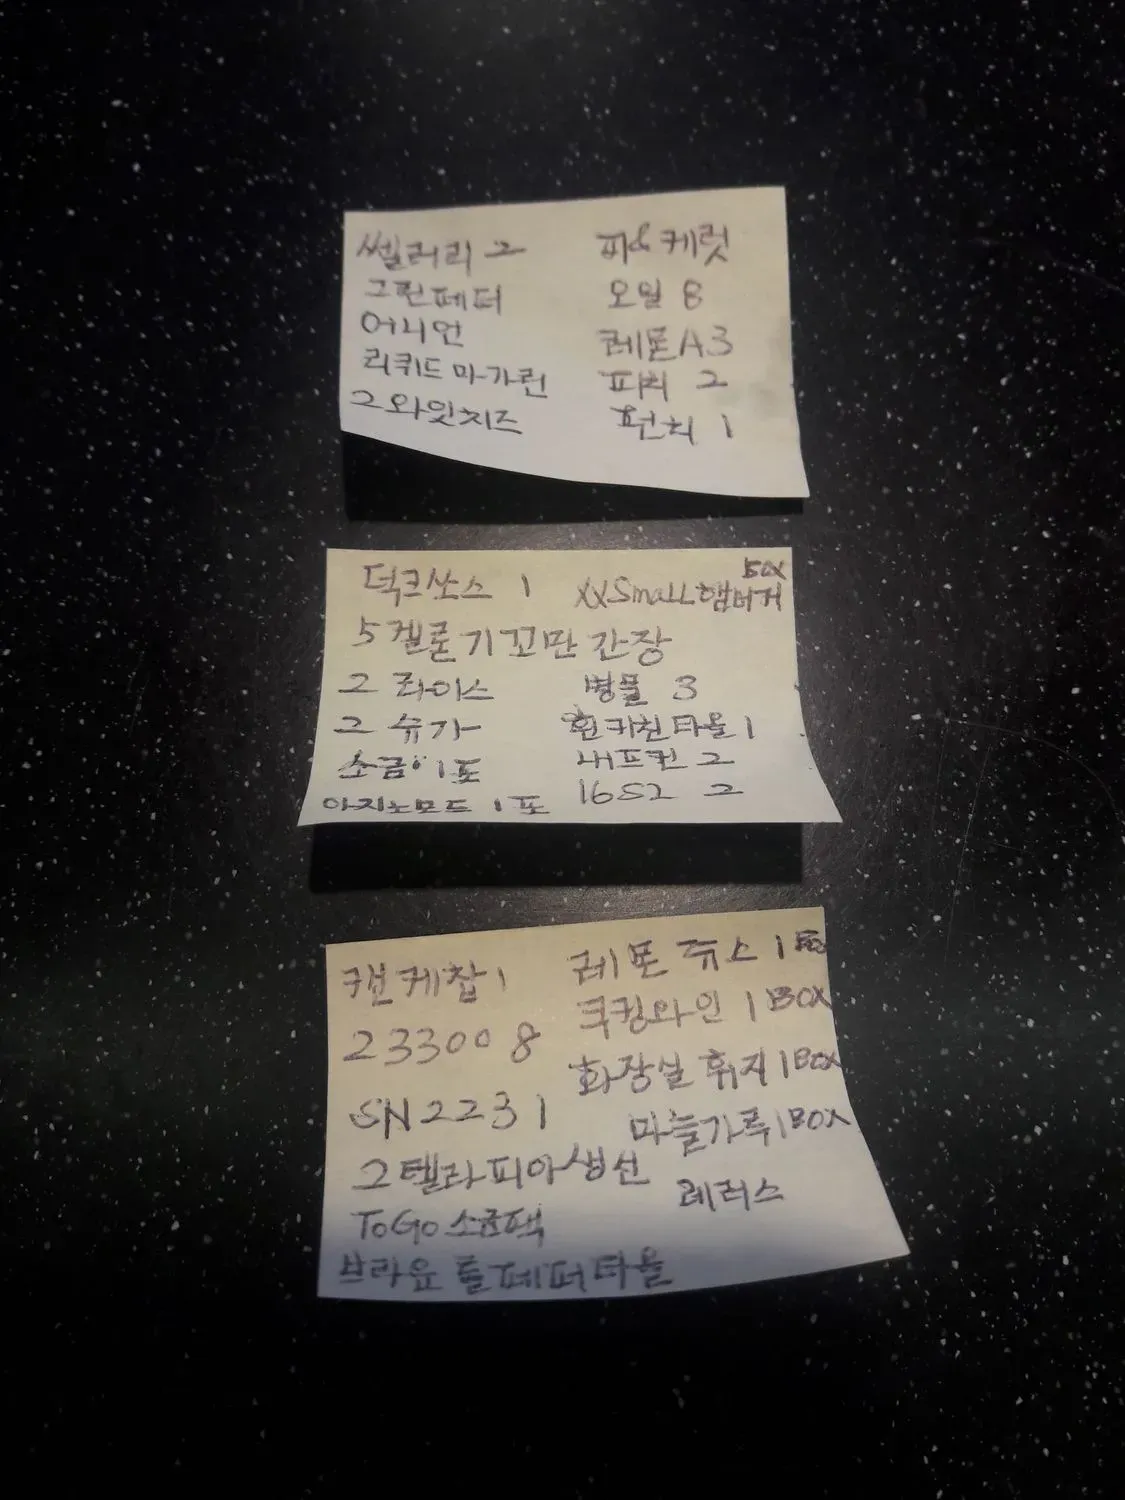 쎌러리 2
그린페퍼
어니언
리퀴드 마가린
2 와잇치즈
피&케럿
오일 8
레몬A3
피치 2
펀치 1
덕크쏘스 1
XXSmaLL햄버거 BOX
5 겔론 기꼬만 간장
2 라이스
2 슈가
소금 1포
아지노모도 1포
병물 3
흰키친타올 1
내프킨 2
16S2 2
캔케찹 1
233008
SN2231
2텔라피아생선
ToGo소금팩
브라운 롤페퍼타올
레몬 쥬스 1 Box
쿠킹와인 1 BOX
화장실 휴지 1 BOX
마늘가루 1 BOX
레러스